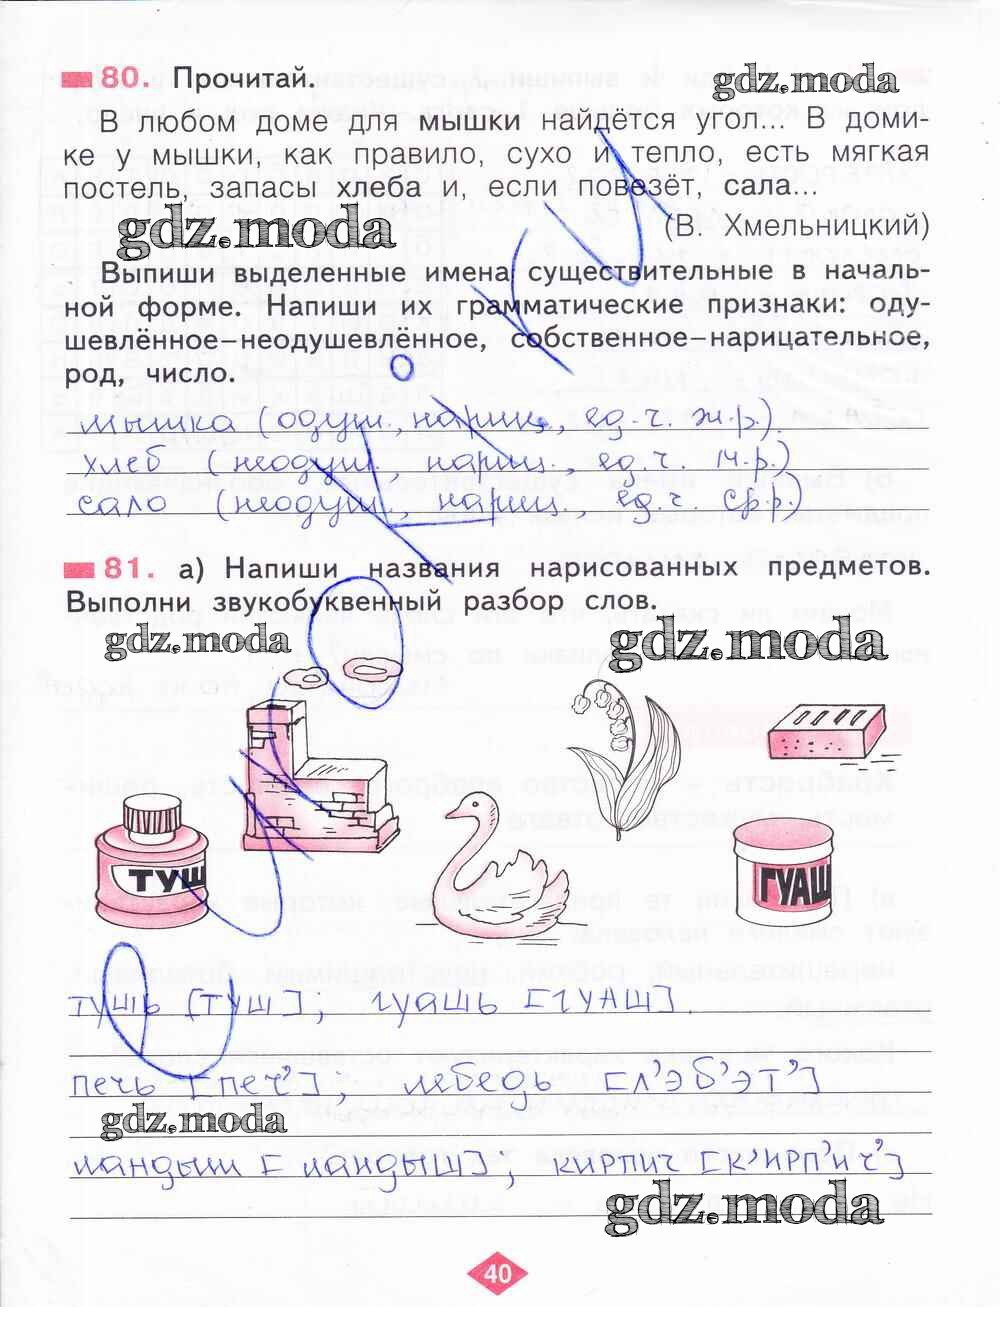 80. Прочитай.
gdz.moda
В любом доме для мышки найдётся угол... В доми-
ке у мышки, как правило, сухо и тепло, есть мягкая
постель, запасы хлеба и, если повезёт, сала...
gdz.moda
(В. Хмельницкий)
Выпиши выделенные имена существительные в началь-
ной форме. Напиши их грамматические признаки: оду-
шевлённое–неодушевлённое, собственное–нарицательное,
род, число.
мышка (одуш., нариц., ед.ч. ж.р.).
хлеб (неодуш., нариц., ед.ч. м.р.)
сало (неодуш., нариц., ед.ч ср.р.)
81. а) Напиши названия нарисованных предметов.
Выполни звукобуквенный разбор слов.
gdz.moda
gdz.moda
ТУШ
ГУАШ
тушь [туш]; гуашь [гуаш].
печь [печ’], лебедь [л’эб’эт’]
gdz.moda
ландыш [ландыш]; кирпич [к’ирп’ич’]
gdz.moda
40